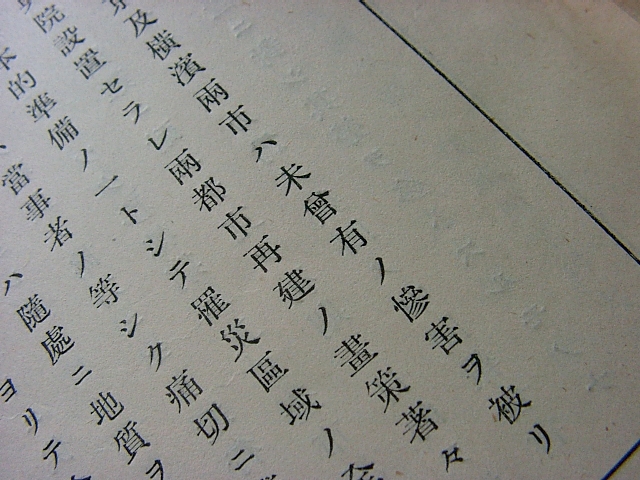 及横濱兩市ハ未曾有ノ慘害ヲ被リ
院設置セラレ兩都市再建ノ畫策著
的準備ノ一トシテ罹災區域ノ
當事者ノ等シク痛切ニ
ハ隨處ニ地質ヲ
ヨリテ